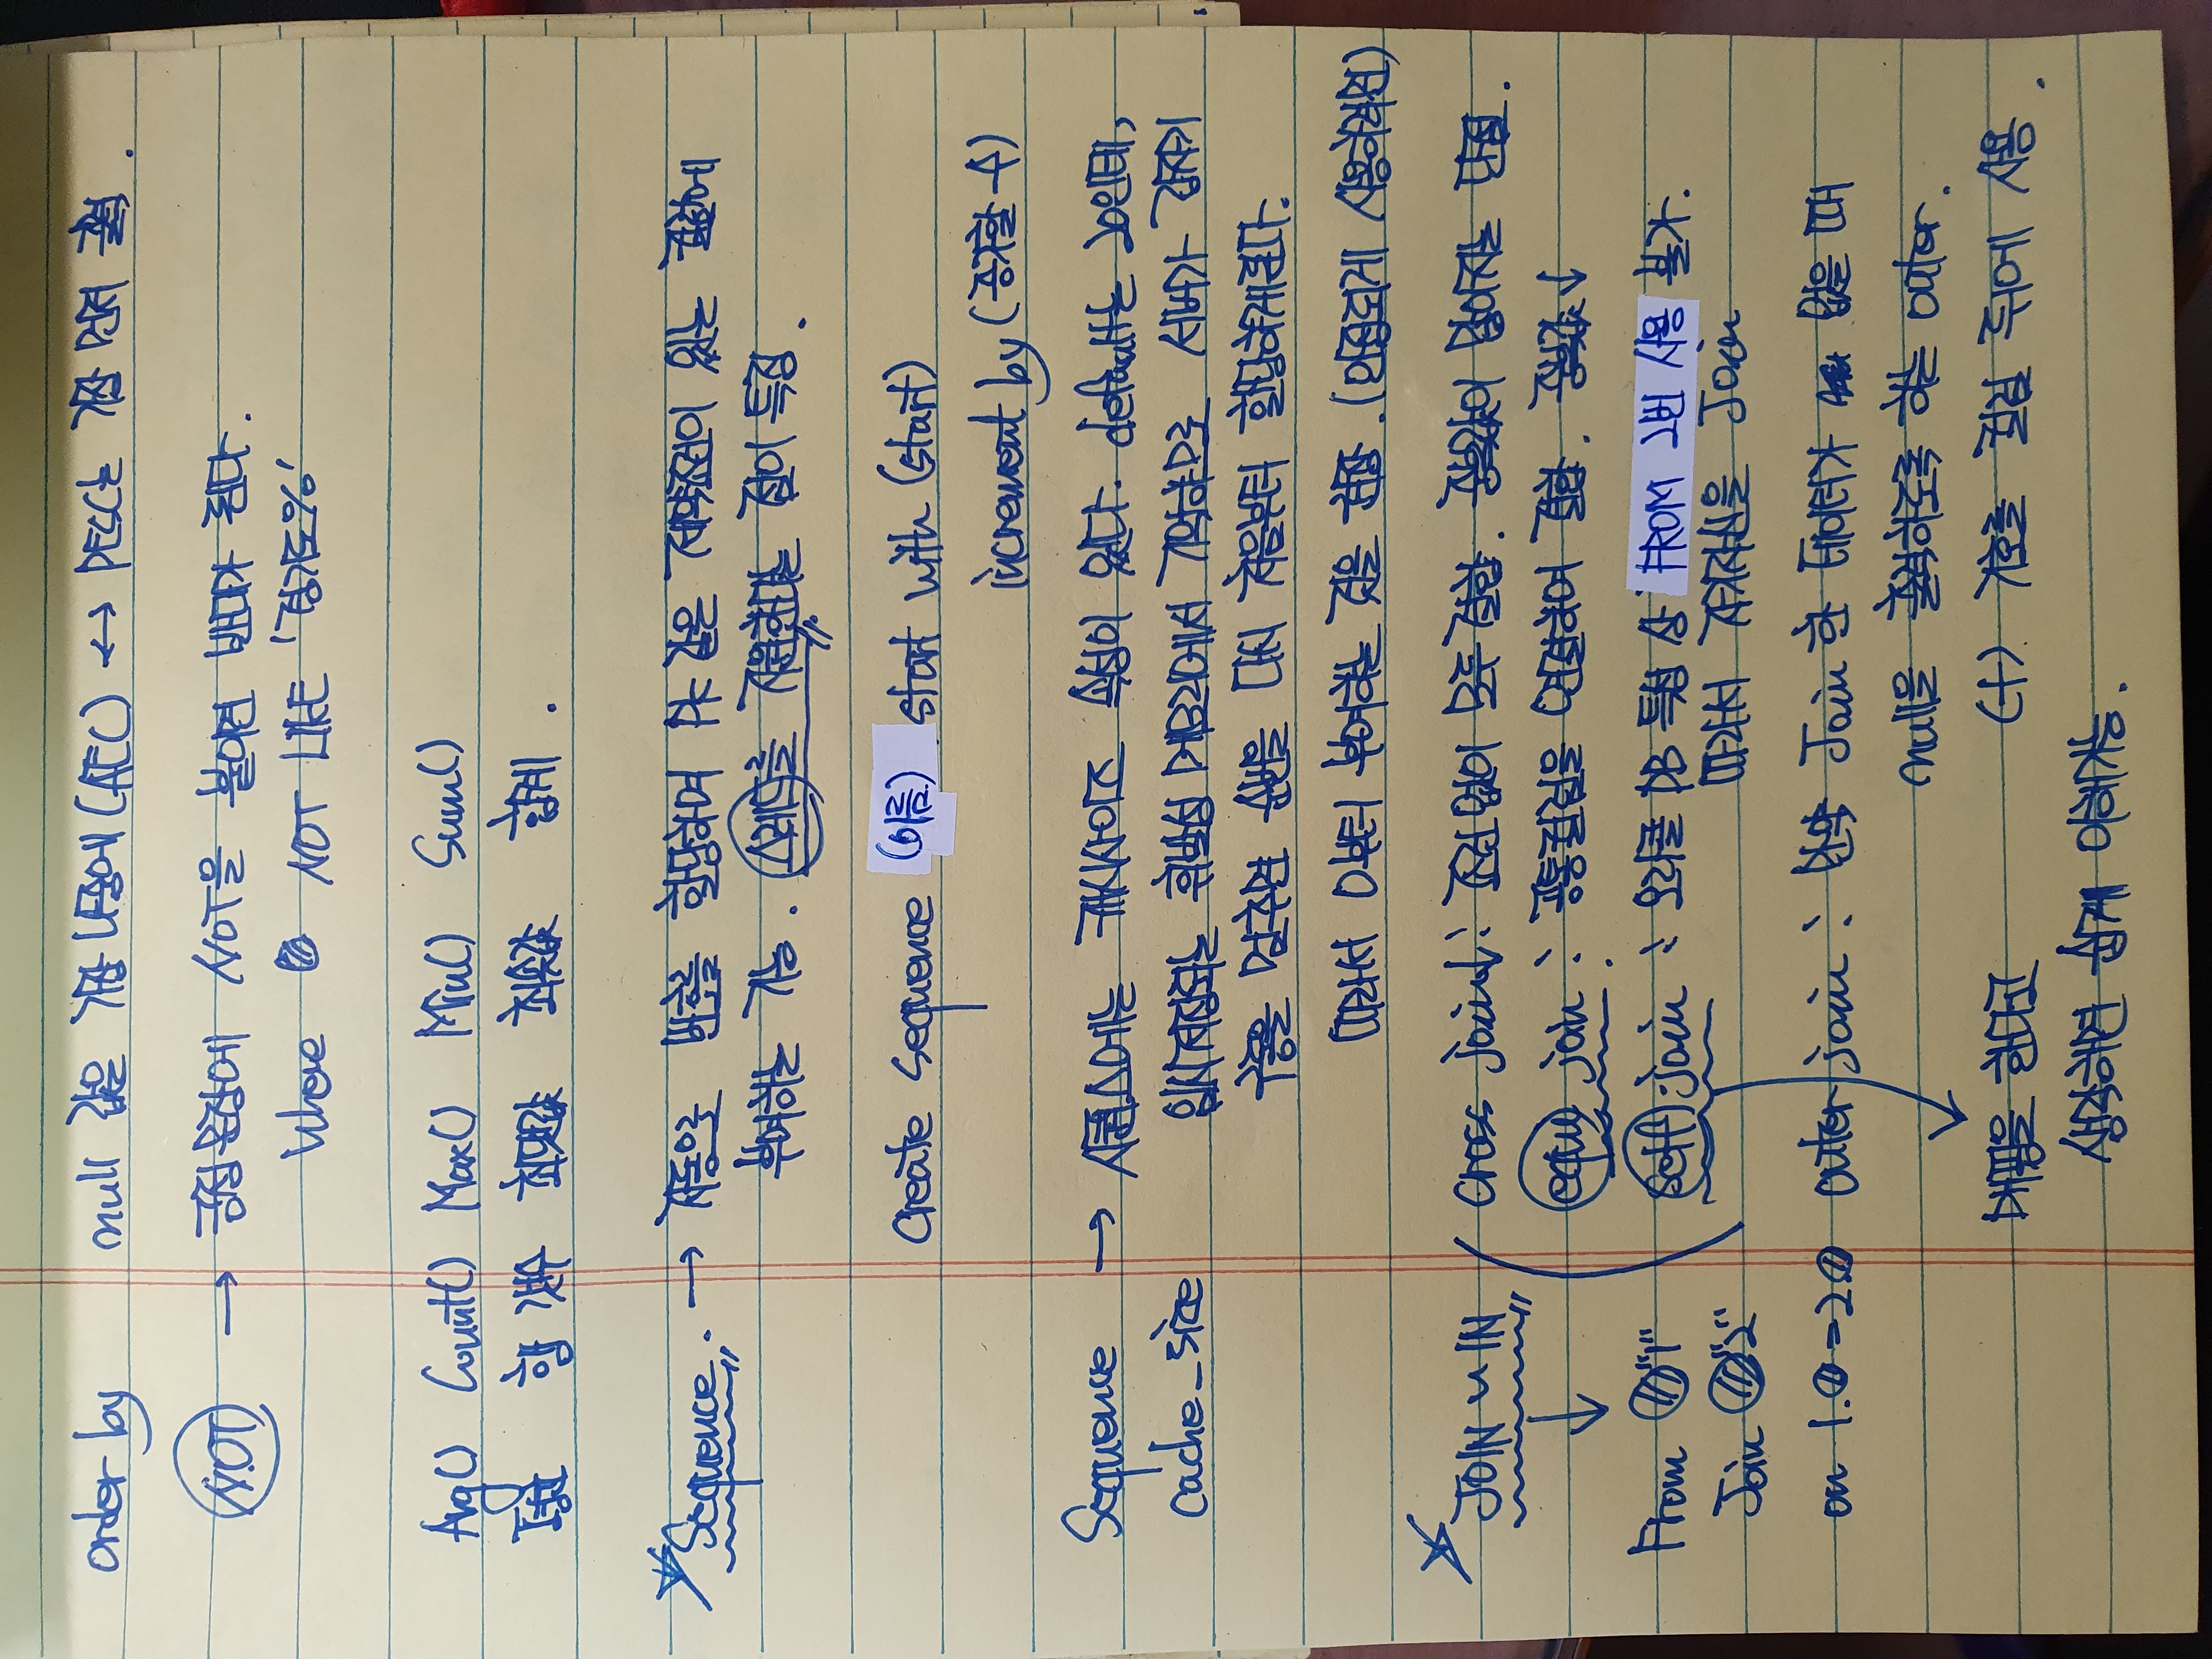 order by null 값은 가장 나중에 (AEC) ↔ DESC는 가장 먼저 출력.
NOT → 긍정문장에 NOT을 붙이면 반대가 된다.
Where NOT LIKE '경기도%'
Avg() Count() Max() Min() Sum()
평균 행 갯수 최댓값 최솟값 합계.
Sequence. → 자동으로 번호를 할당하여 PK 같은 제약조건이 있는 컬럼에
부여하는 기능. 스레드를 지원한다는 점이 특징.
Create sequence (이름) start with (start)
increment by (증가할 수)
Sequence → 시퀀스에는 캐시사이즈 속성이 있다. default는 20인데,
cache_size 임시저장되는 휘발성 메모리에서 기억하므로 서버가 갑자기
구동을 멈추면 순번을 다시 처음부터 할당하게된다.
따라서 0부터 부여하는 것을 권장. (안정되게 사용하려면)
JOIN ~ IN cross join : 조건 없이 모두 결합. 중복값이 많아지는 단점.
equi join : 공통컬럼을 연결하여 결합. 중복값↓
From "1" self join : 오라클 DB 특성 상 FROM 2번 사용 불가.
Join "2" 따라서 자기자신을 Join
on 1. = 2. outer join : 만약 Join 한 데이터가 없을 때
null을 출력하도록 하는 outer.
매핑을 한다고 (+) 기호를 컬럼 뒤에 사용.
생각하면 쉽게 이해가능.